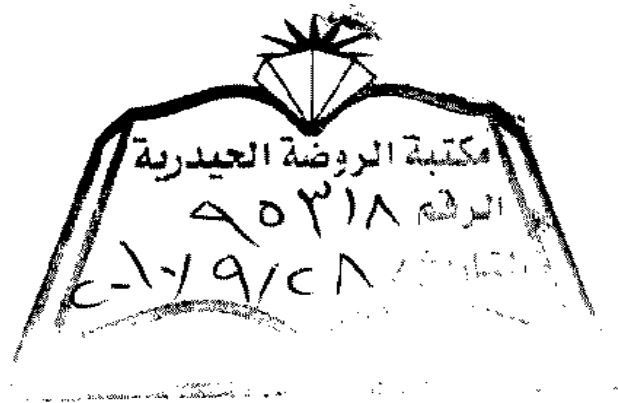 مكتبة الروضة الحيدرية
الرقم ٩٥٣١٨
التاريخ ٢٠١٠/٩/٢٨